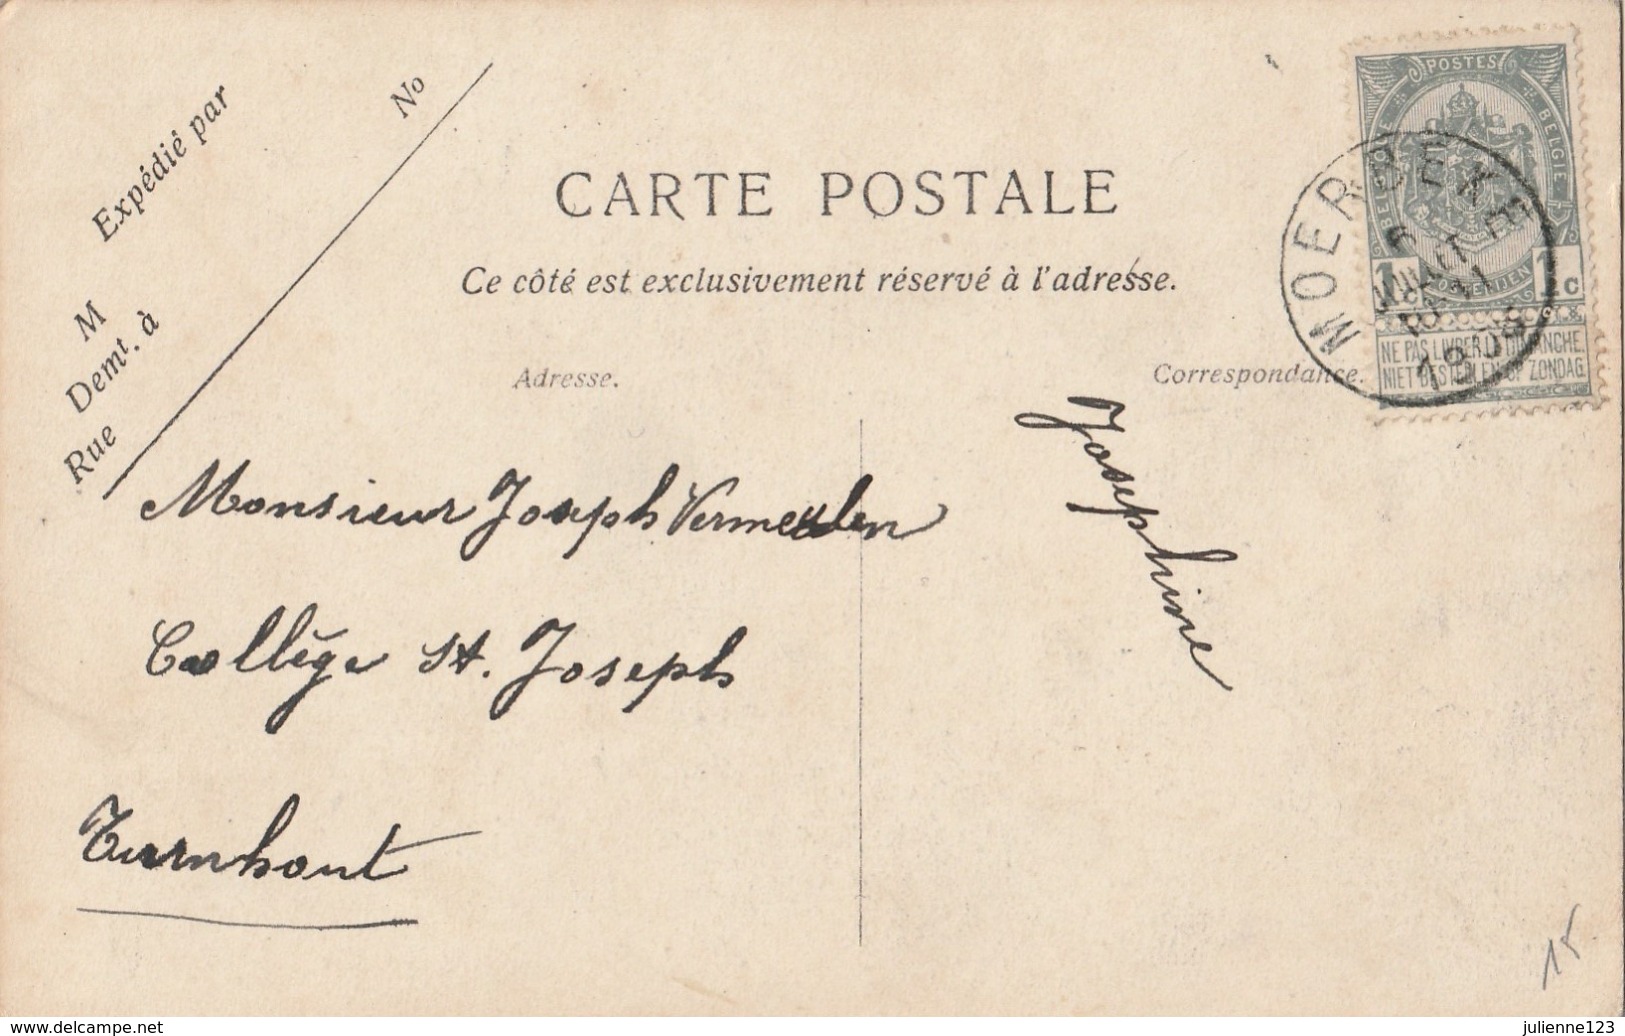 Expédié par
No
M
Demt. à
Rue
CARTE POSTALE
Ce côté est exclusivement réservé à l'adresse.
Adresse.
Correspondance.
POSTES
BELGIQUE
BELGIE
1c
1c
NE PAS LIVRER LE DIMANCHE
NIET BESTELLEN OP ZONDAG
MOERBEKE
6
JUILLET
Monsieur Joseph Vermeulen
Collège St. Joseph
Turnhout
Josephine
15
www.delcampe.net
julienne123